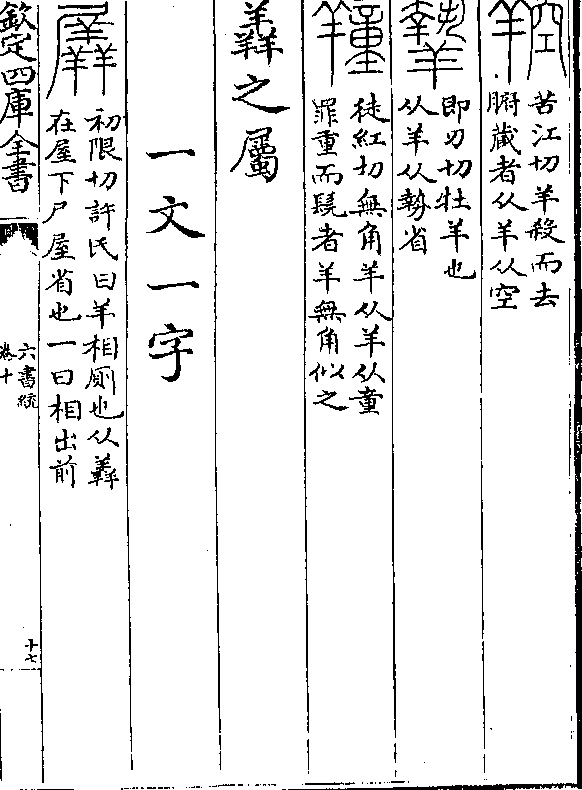 羫
苦江切羊殺而去
腑藏者从羊从空
即刃切牡羊也
从羊从勢省
徒紅切無角羊从羊从童
罪重而髠者羊無角似之
羴之屬
一文一字
羼
初限切許氏曰羊相厠也从羴
在屋下尸屋省也一曰相出前
欽定四庫全書
六書統
卷十
十七